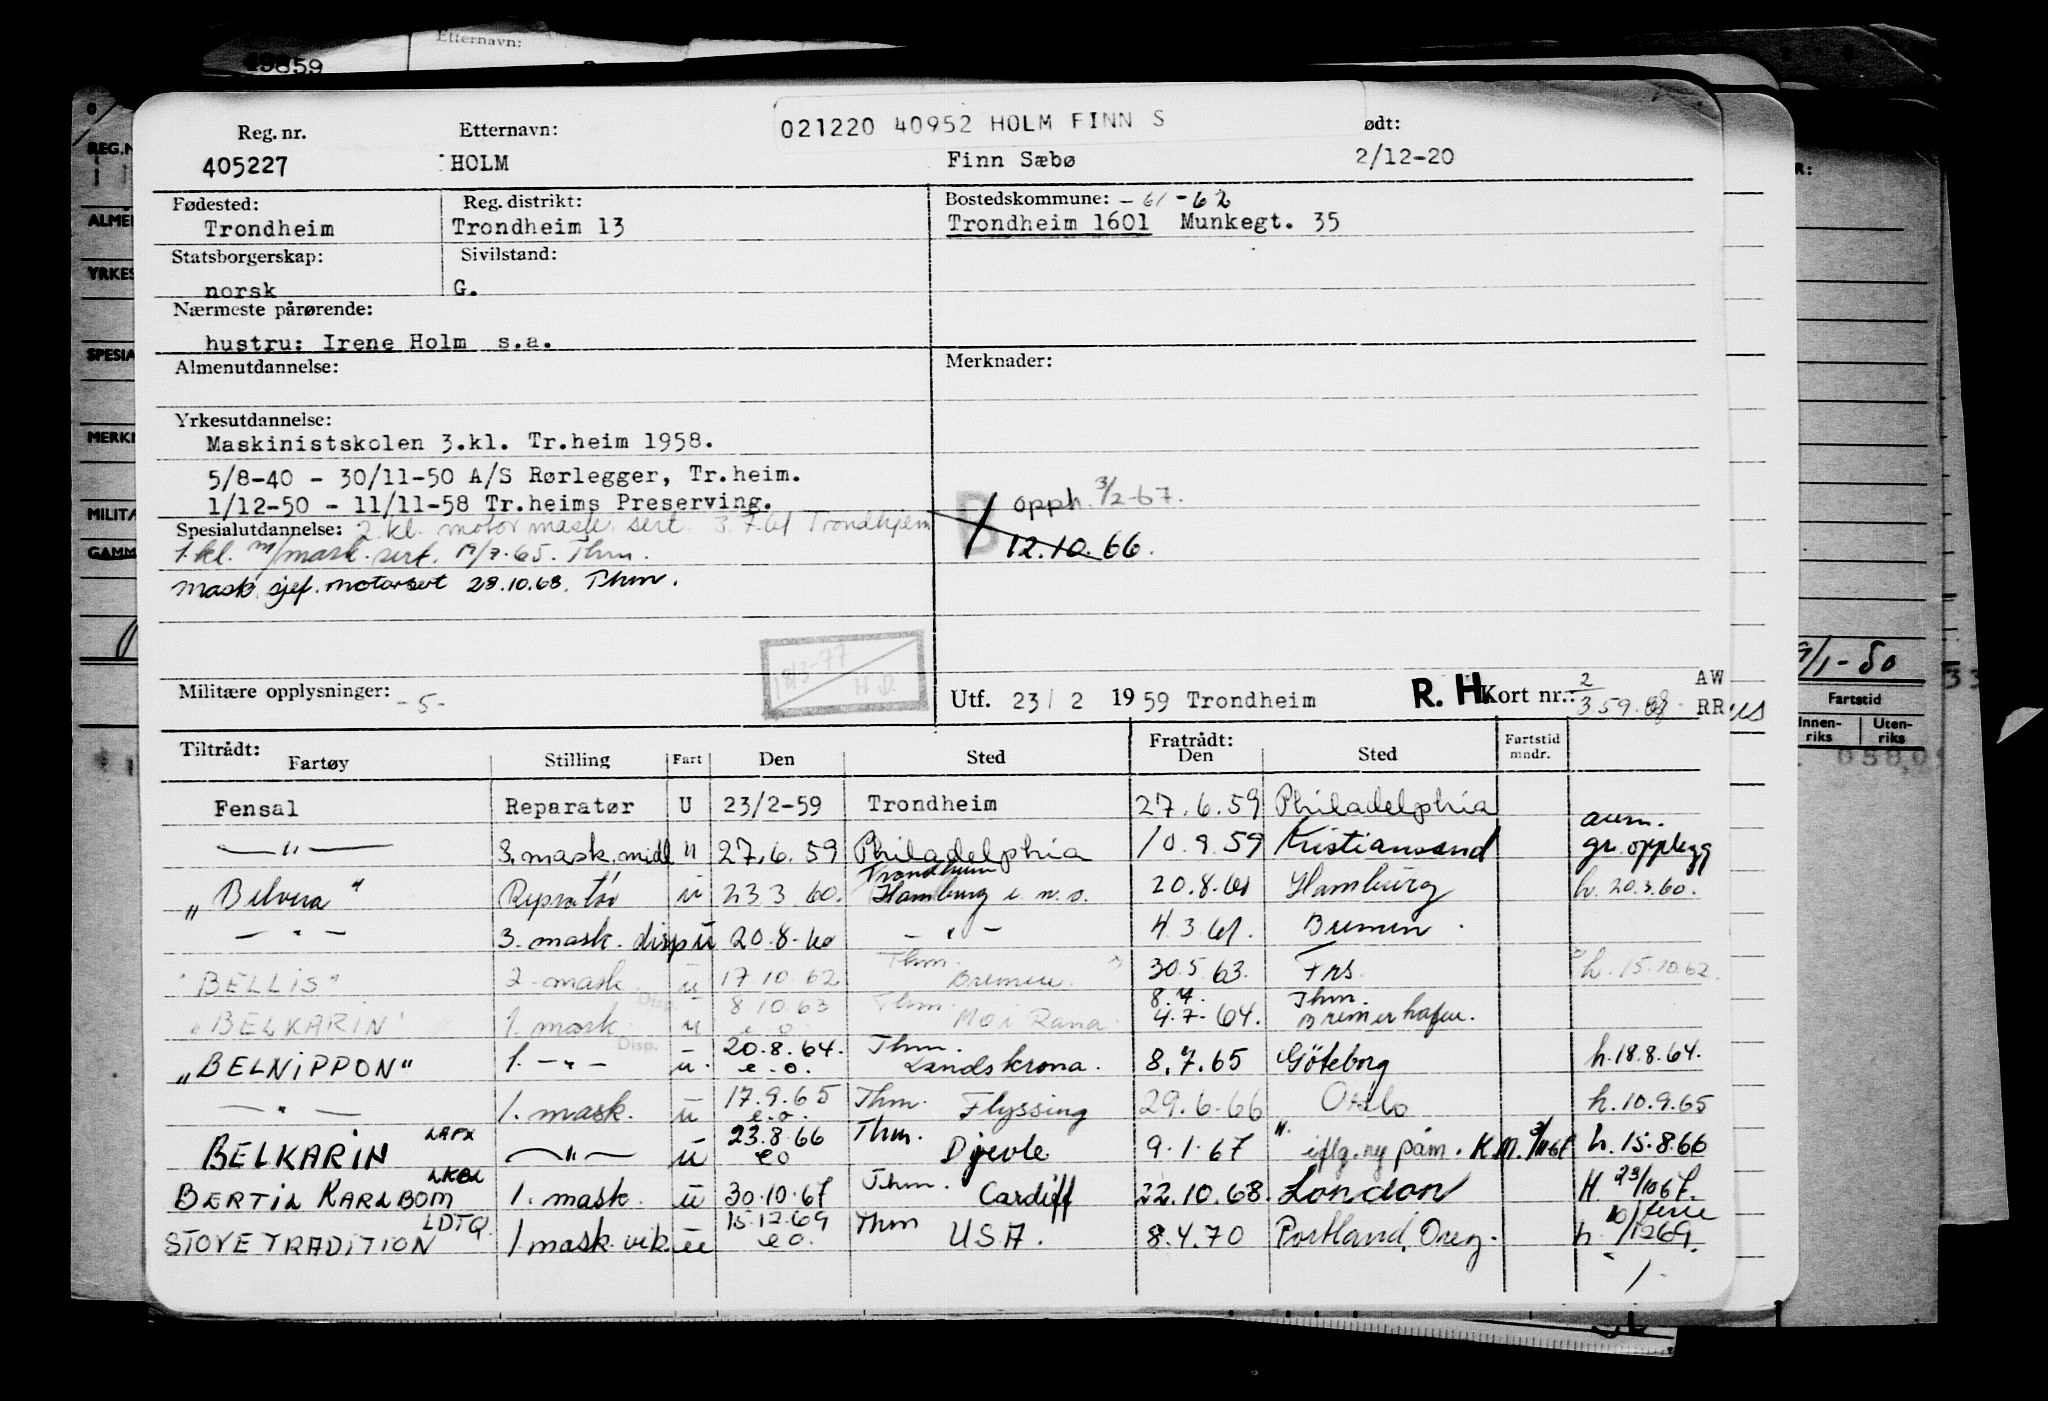 Etternavn:
021220 40952 HOLM FINN S
Reg. nr. Etternavn: ødt:
405227 HOLM Finn Sæbø 2/12-20
Fødested: Reg. distrikt: Bostedskommune: - 61-62
Trondheim Trondheim 13 Trondheim 1601 Munkegt. 35
Statsborgerskap: Sivilstand:
norsk G.
Nærmeste pårørende:
hustru: Irene Holm s.a.
Almenutdannelse: Merknader:
Yrkesutdannelse:
Maskinistskolen 3.kl. Tr.heim 1958.
5/8-40 - 30/11-50 A/S Rørlegger, Tr.heim.
1/12-50 - 11/11-58 Tr.heims Preserving.
B opph. 3/2-67.
12.10.66.
Spesialutdannelse: 2 kl. motor mask. sert. 3.7.61 Trondhjem
1. kl. m/mask. sert. 17/7.65. Thm.
mask. sjef. motorsert 28.10.68. Thm.
18/3-77
H.D.
Militære opplysninger: -5- Utf. 23/2 1959 Trondheim R. H. Kort nr.: 2 AW
RR
Tiltrådt: Fratrådt:
Fartøy Stilling Fart Den Sted Den Sted Fartstid mndr.
Fensal Reparatør U 23/2-59 Trondheim 27.6.59 Philadelphia
—„— 3. mask. midl " 27.6.59 Philadelphia 10.9.59 Kristiansand gr. opplegg
"Belvera" Reparatør u 23 3 60. Trondheim Hamburg e.n.o. 20.8.60 Hamburg h. 20.3.60.
—„— 3. mask. disp u 20.8.60 —„— 4.3.61. Bremen.
"BELLIS" 2. mask. u 17 10 62 Thm. Bremen. 30.5.63. Frs. h. 15.10.62.
"BELKARIN" 1. mask. Disp. u 8.10.63 e.o. Thm. Mo i Rana 8.7. 4.7.64. Thm. Bremerhafen.
"BELNIPPON" 1. —„— Disp. u. 20.8.64. e.o. Thm. Landskrona. 8.7.65 Göteborg h. 18.8.64.
—„— 1. mask. u 17.9.65 e.o. Thm. Flyssing 29.6.66 Oslo h. 10.9.65
BELKARIN LAPX —„— u 23.8.66 eo Thm. Djevle 9.1.67 " iflg. ny påm. K.M. h. 15.8.66
BERTIL KARLBOM 1. mask. u 30.10.67 Thm. Cardiff 22.10.68. London H. 23/10 67.
STOVE TRADITION LDTQ. 1 mask. vik. u 15.12.69 eo. Thm USA. 8.4.70 Portland, Oreg. h. 10/12 69.
REG.N
ALMEN
YRKES
SPESIA
MERKN
MILITÆ
GAMM
9/1-50
Fartstid
Innen-riks Uten-riks